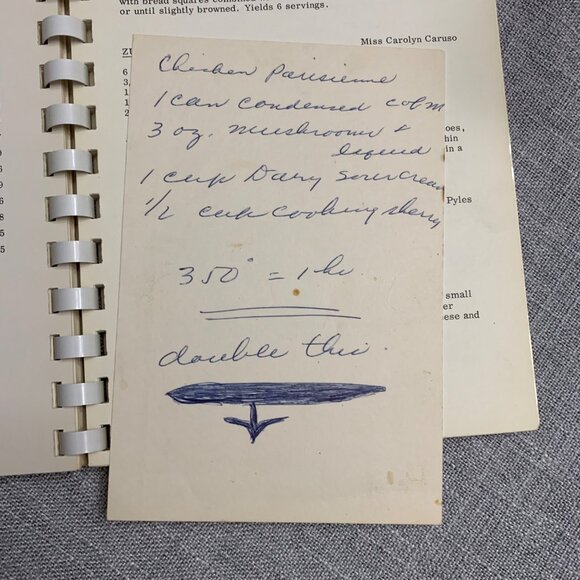 with bread squares combined
or until slightly browned. Yields 6 servings.
Miss Carolyn Caruso
ZU
Chicken Parisienne
1 can condensed c of m
3 oz. mushrooms &
liquid
1 cup Dairy Sour cream
1/2 cup cooking sherry
350° = 1 hr.
double this
oes,
hin
in a
Pyles
small
er
ese and